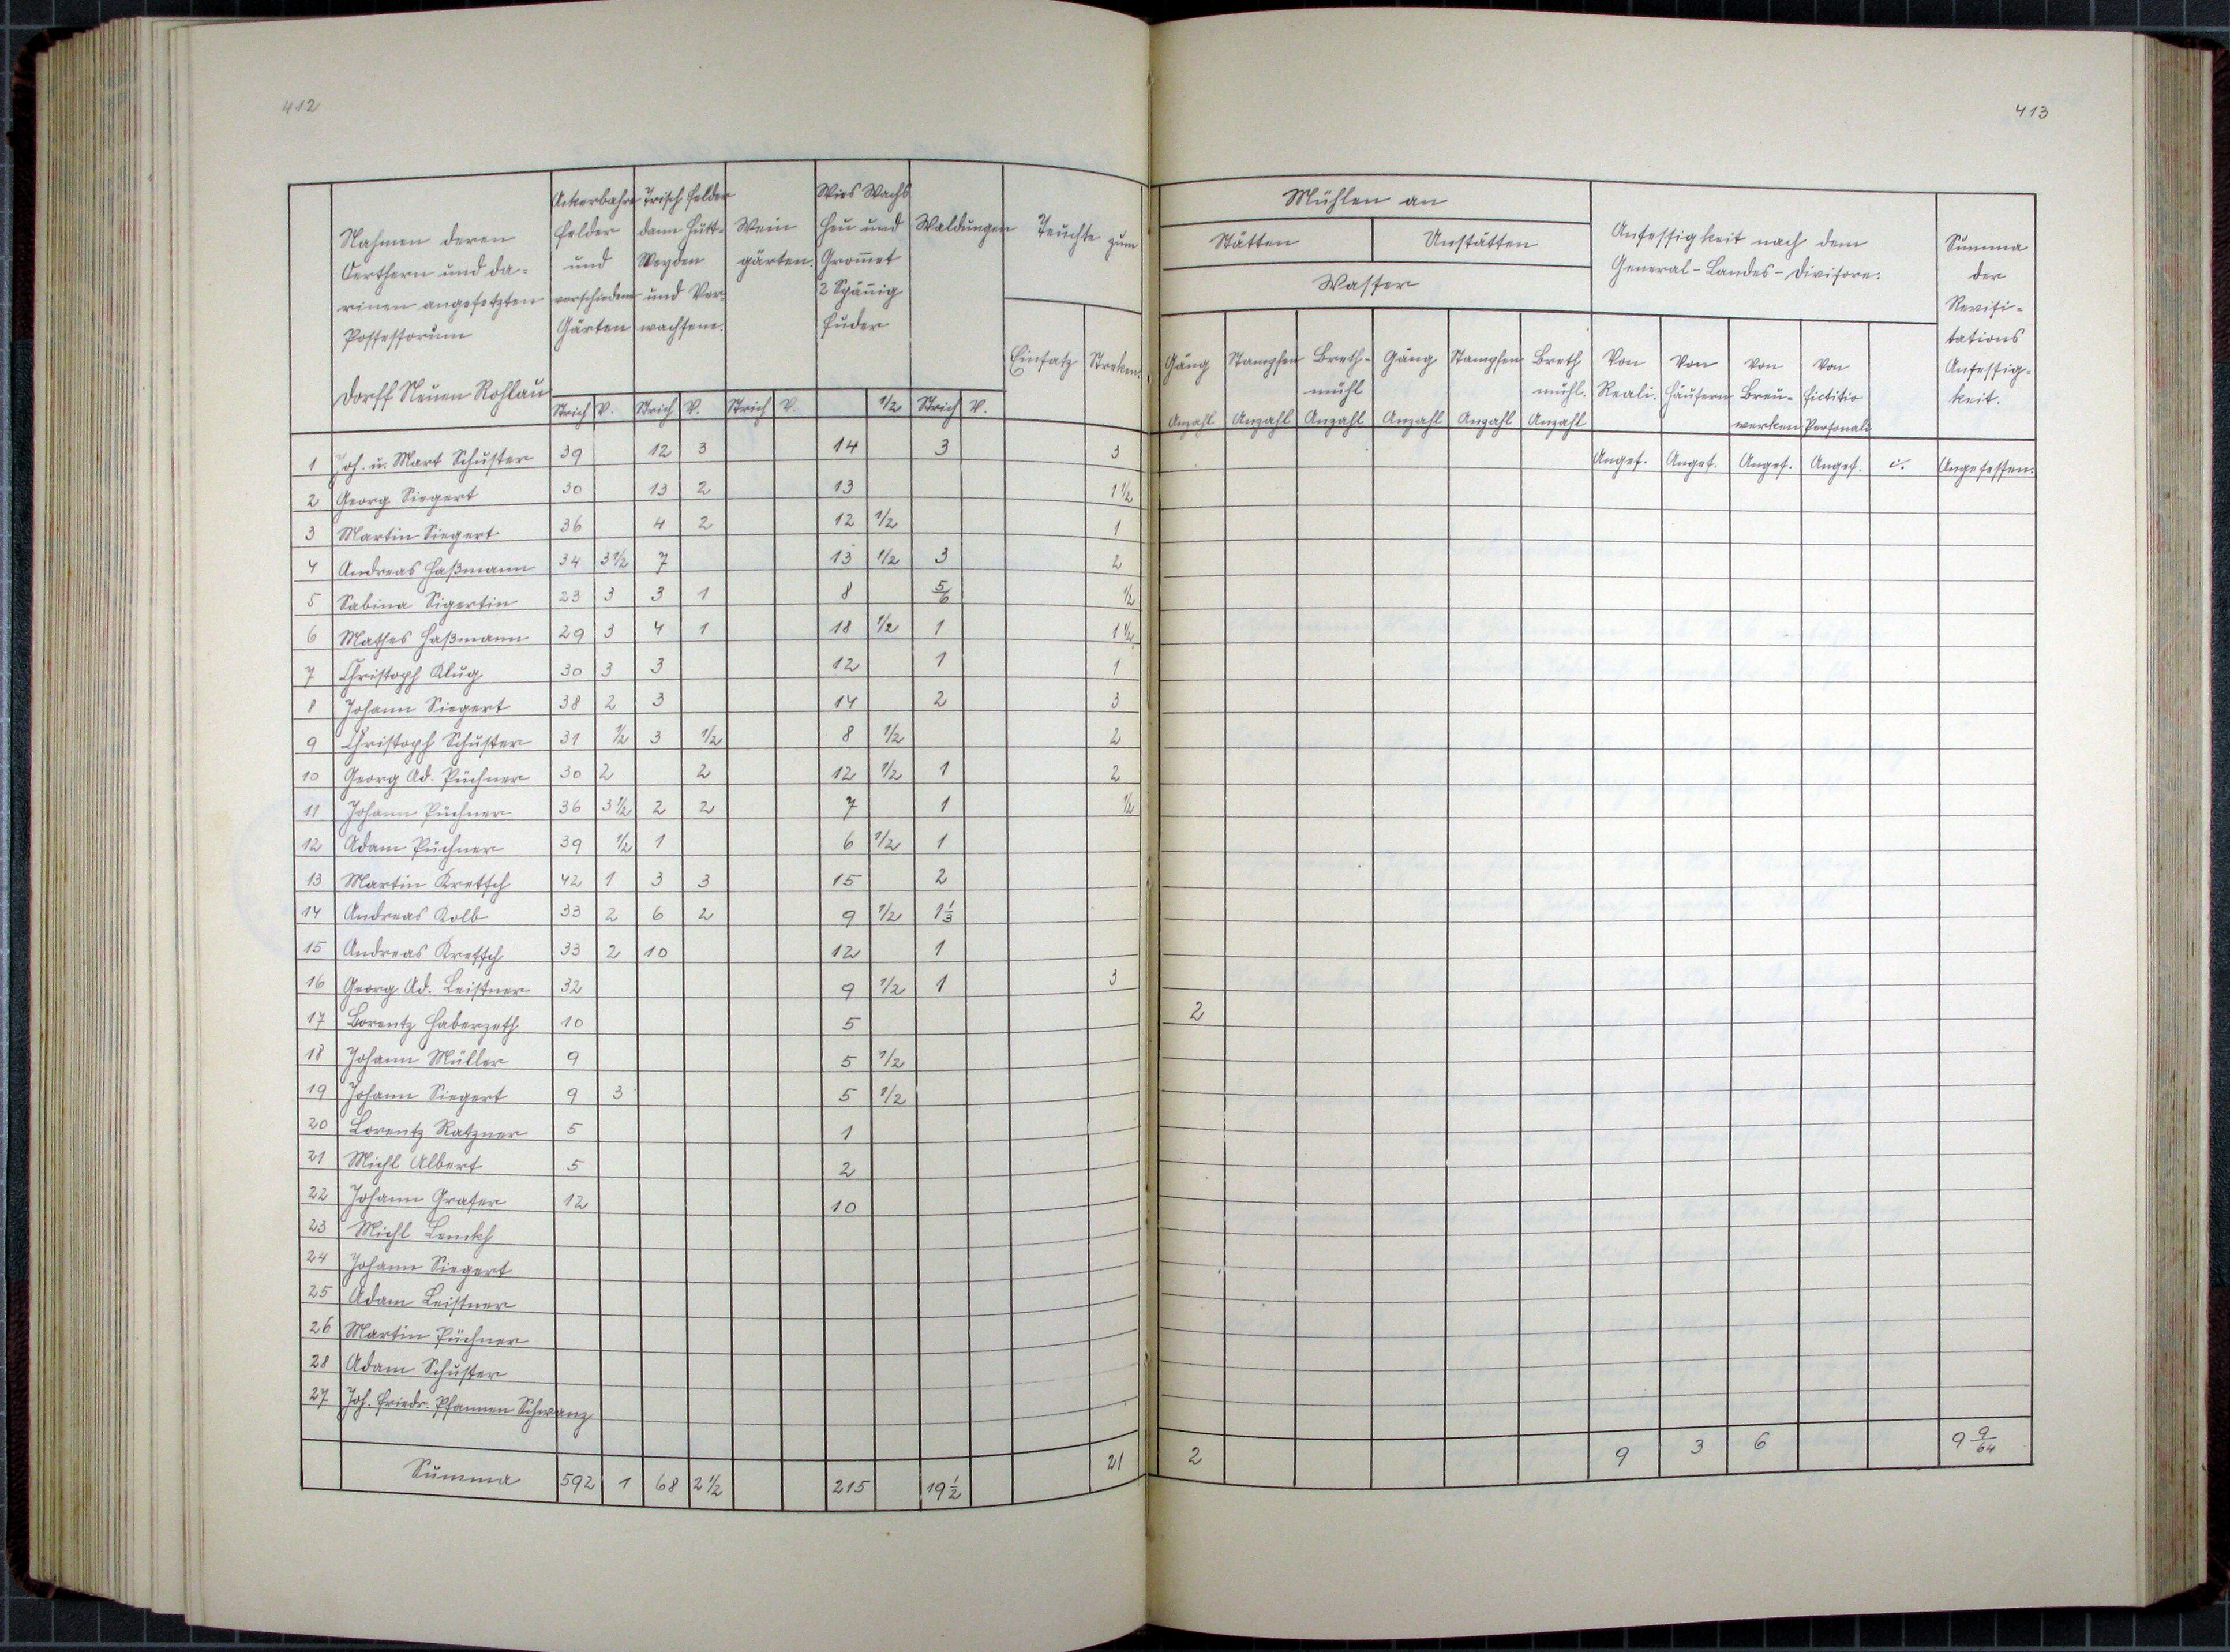 412
Nahmen deren
Oerthern und da-
rinen angesetzten
Possessorum
Dorff Neuen Rohlau
Ackerbahre
felder
und
verschiedene
Gärten
Strich V.
Trisch felder
dann Hutt-
Weyden
und Ver-
wachsene.
Strich V.
Wein
gärten.
Strich V.
Wies Wachs
Heu und
Grom̅et
2 Spän̅ig
Fuder
1/2
Waldungen
Strich V.
Teuchte zum
Einsatz Streken.
1 Joh. u. Mart Schuster 39 12 3 14 3 3
2 Georg Siegert 30 13 2 13 1 1/2
3 Martin Siegert 36 4 2 12 1/2 1
4 Andreas Haßmann 34 3 1/2 7 13 1/2 3 2
5 Sabina Sigertin 23 3 3 1 8 5/6 1/2
6 Mathes Haßmann 29 3 4 1 18 1/2 1 1 1/2
7 Christoph Klug 30 3 3 12 1 1
8 Johann Siegert 38 2 3 14 2 3
9 Christoph Schuster 31 1/2 3 1/2 8 1/2 2
10 Georg Ad. Püchner 30 2 2 12 1/2 1 2
11 Johann Püchner 36 3 1/2 2 2 7 1 1/2
12 Adam Püchner 39 1/2 1 6 1/2 1
13 Martin Kretsch 42 1 3 3 15 2
14 Andreas Kolb 33 2 6 2 9 1/2 1 1/3
15 Andreas Kretsch 33 2 10 12 1
16 Georg Ad. Leistner 32 9 1/2 1 3
17 Lorentz Haberzeth 10 5
18 Johann Müller 9 5 1/2
19 Johann Siegert 9 3 5 1/2
20 Lorentz Ratzner 5 1
21 Michl Albert 5 2
22 Johann Graser 12 10
23 Michl
24 Johann Siegert
25 Adam Leistner
26 Martin Püchner
28 Adam Schuster
27 Joh. Friedr. Pfannen Schwanz
Summa 592 1 68 2 1/2 215 19 1/2 21
413
Mühlen an
Stätten Unstätten
Wasser
Gäng Stampfen Breth-
mühl
Gäng Stampfen Breth
mühl.
Anzahl Anzahl Anzahl Anzahl Anzahl Anzahl
Ansessigkeit nach dem
General-Landes-Divisore.
Von
Reali.
Von
Häusern
Von
Breu-
werken
Von
fictitio
Personali
Summa
der
Revisi-
tations
Ansessig-
keit.
Anges. Anges. Anges. Anges. c. Angesessen.
2
2 9 3 6 9 9/64